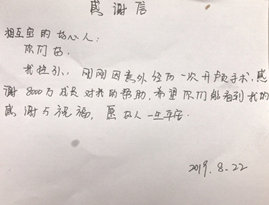 感谢信
相互宝的好心人：
你们好
刚刚因意外经历一次开颅手术，感
谢8000万成员对我的帮助，希望你们能看到我的
感谢与祝福，愿好人一生平安。
2019.8.22